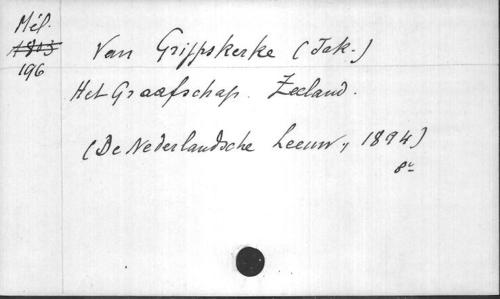 Mél.
196
Van Grijpskerke (Jak.)
Het Graafschap Zeeland.
(De Nederlandsche Leeuw, 1894)
8º